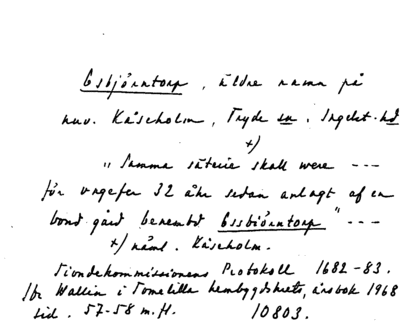 Esbjörntorp, äldre namn på
nuv. Kåseholm, Tryde sn, Ingelst. hd
+)
"Samma säterie skall were ---
för ungefer 32 åhr sedan anlagt af en
bond gård benembd Essbiörntorp" ---
+) näml. Kåseholm.
Tiondekommissionens Protokoll 1682-83.
Jfr Wallin i Tomelilla hembygdskrets, årsbok 1968
sid. 57-58 m.fl. 10803.